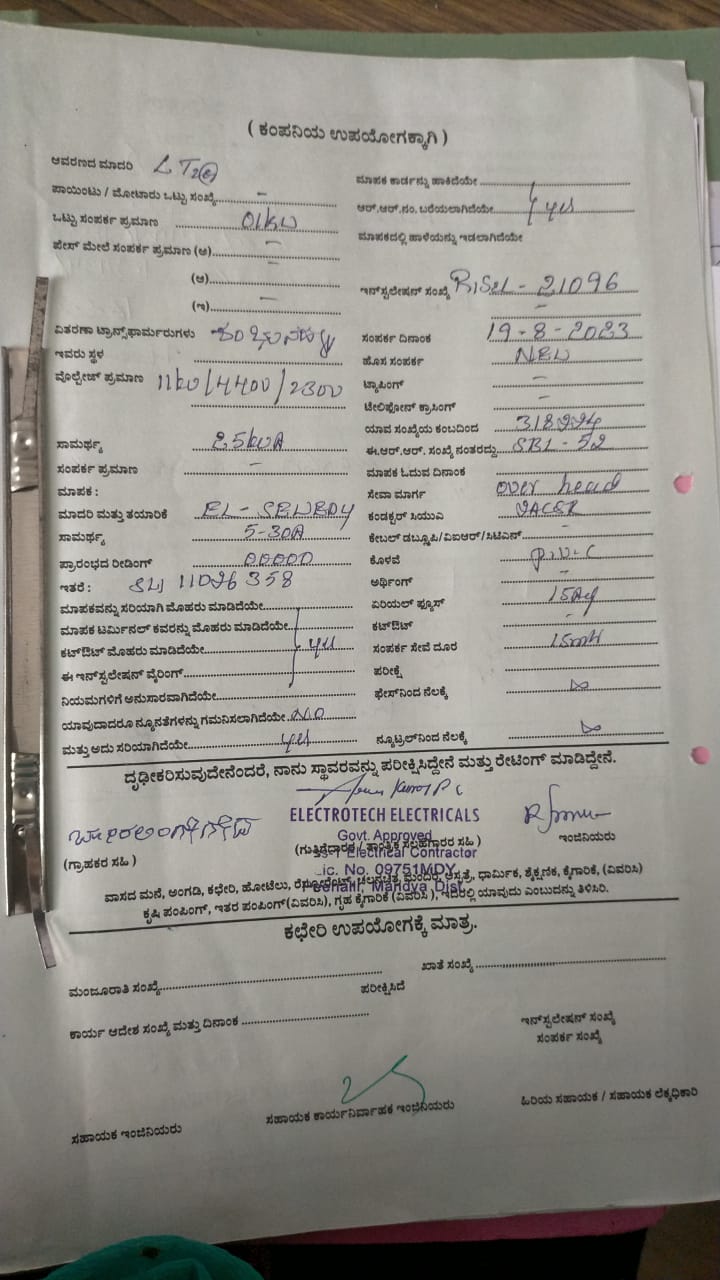 ( ಕಂಪನಿಯ ಉಪಯೋಗಕ್ಕಾಗಿ )
ಆವರಣದ ಮಾದರಿ LT2(a)
ಪಾಯಿಂಟು / ಮೋಟಾರು ಒಟ್ಟು ಸಂಖ್ಯೆ -
ಒಟ್ಟು ಸಂಪರ್ಕ ಪ್ರಮಾಣ 01KW
ಫೇಸ್ ಮೇಲೆ ಸಂಪರ್ಕ ಪ್ರಮಾಣ (ಅ) -
(ಆ) -
(ಇ) -
ವಿತರಣಾ ಟ್ರಾನ್ಸ್‌ಫಾರ್ಮರುಗಳು
ಇವರು ಸ್ಥಳ
ವೊಲ್ಟೇಜ್ ಪ್ರಮಾಣ 11kv/4400/2300
ಸಾಮರ್ಥ್ಯ 25kVA
ಸಂಪರ್ಕ ಪ್ರಮಾಣ -
ಮಾಪಕ :
ಮಾದರಿ ಮತ್ತು ತಯಾರಿಕೆ
ಸಾಮರ್ಥ್ಯ 5-30A
ಪ್ರಾರಂಭದ ರೀಡಿಂಗ್ 00000
ಇತರೆ : 11096358
ಮಾಪಕವನ್ನು ಸರಿಯಾಗಿ ಮೊಹರು ಮಾಡಿದೆಯೇ
ಮಾಪಕ ಟರ್ಮಿನಲ್ ಕವರನ್ನು ಮೊಹರು ಮಾಡಿದೆಯೇ
ಕಟ್‌ಔಟ್ ಮೊಹರು ಮಾಡಿದೆಯೇ yes
ಈ ಇನ್‌ಸ್ಟಲೇಷನ್ ವೈರಿಂಗ್
ನಿಯಮಗಳಿಗೆ ಅನುಸಾರವಾಗಿದೆಯೇ
ಯಾವುದಾದರೂ ನ್ಯೂನತೆಗಳನ್ನು ಗಮನಿಸಲಾಗಿದೆಯೇ NO
ಮತ್ತು ಅದು ಸರಿಯಾಗಿದೆಯೇ yes
ಮಾಪಕ ಕಾರ್ಡನ್ನು ಹಾಕಿದೆಯೇ
ಆರ್.ಆರ್.ನಂ. ಬರೆಯಲಾಗಿದೆಯೇ yes
ಮಾಪಕದಲ್ಲಿ ಹಾಳೆಯನ್ನು ಇಡಲಾಗಿದೆಯೇ
ಇನ್‌ಸ್ಟಲೇಷನ್ ಸಂಖ್ಯೆ - 21096
-
ಸಂಪರ್ಕ ದಿನಾಂಕ 19-8-2023
ಹೊಸ ಸಂಪರ್ಕ NEW
ಟ್ಯಾಪಿಂಗ್ -
ಟೇಲಿಫೋನ್ ಕ್ರಾಸಿಂಗ್ -
ಯಾವ ಸಂಖ್ಯೆಯ ಕಂಬದಿಂದ
ಈ.ಆರ್.ಆರ್. ಸಂಖ್ಯೆ ನಂತರದ್ದು SBL-52
ಮಾಪಕ ಓದುವ ದಿನಾಂಕ -
ಸೇವಾ ಮಾರ್ಗ over head
ಕಂಡಕ್ಟರ್ ಸಿಯುಎ
ಕೇಬಲ್ ಡಬ್ಲೂಪಿ/ವಿಐಆರ್/ಸಿಟಿಎಸ್ -
ಕೊಳವೆ P.V.C
ಅರ್ಥಿಂಗ್ -
ಏರಿಯಲ್ ಫ್ಯೂಸ್
ಕಟ್‌ಔಟ್ -
ಸಂಪರ್ಕ ಸೇವೆ ದೂರ
ಪರೀಕ್ಷೆ
ಫೇಸ್‌ನಿಂದ ನೆಲಕ್ಕೆ
ನ್ಯೂಟ್ರಲ್‌ನಿಂದ ನೆಲಕ್ಕೆ
ದೃಢೀಕರಿಸುವುದೇನೆಂದರೆ, ನಾನು ಸ್ಥಾವರವನ್ನು ಪರೀಕ್ಷಿಸಿದ್ದೇನೆ ಮತ್ತು ರೇಟಿಂಗ್ ಮಾಡಿದ್ದೇನೆ.
ELECTROTECH ELECTRICALS
Govt. Approved
(ಗ್ರಾಹಕರ ಸಹಿ )
(ಗುತ್ತಿಗೆದಾರರ / ತಾಂತ್ರಿಕ ಸಲಹೆಗಾರರ ಸಹಿ )
ಇಂಜಿನಿಯರು
Electrical Contractor
Lic. No. 09751MDY
Mandya Dist.
ವಾಸದ ಮನೆ, ಅಂಗಡಿ, ಕಛೇರಿ, ಹೋಟೆಲು, ರೆಸ್ಟೋರೆಂಟ್, ಚಲನಚಿತ್ರ ಮಂದಿರ, ಆಸ್ಪತ್ರೆ, ಧಾರ್ಮಿಕ, ಶೈಕ್ಷಣಿಕ, ಕೈಗಾರಿಕೆ, (ವಿವರಿಸಿ)
ಕೃಷಿ ಪಂಪಿಂಗ್, ಇತರ ಪಂಪಿಂಗ್(ವಿವರಿಸಿ), ಗೃಹ ಕೈಗಾರಿಕೆ (ವಿವರಿಸಿ ), ಇದರಲ್ಲಿ ಯಾವುದು ಎಂಬುದನ್ನು ತಿಳಿಸಿರಿ.
ಕಛೇರಿ ಉಪಯೋಗಕ್ಕೆ ಮಾತ್ರ.
ಮಂಜೂರಾತಿ ಸಂಖ್ಯೆ
ಖಾತೆ ಸಂಖ್ಯೆ
ಪರೀಕ್ಷಿಸಿದೆ
ಕಾರ್ಯ ಆದೇಶ ಸಂಖ್ಯೆ ಮತ್ತು ದಿನಾಂಕ
ಇನ್‌ಸ್ಟಲೇಷನ್ ಸಂಖ್ಯೆ
ಸಂಪರ್ಕ ಸಂಖ್ಯೆ
ಸಹಾಯಕ ಇಂಜಿನಿಯರು
ಸಹಾಯಕ ಕಾರ್ಯನಿರ್ವಾಹಕ ಇಂಜಿನಿಯರು
ಹಿರಿಯ ಸಹಾಯಕ / ಸಹಾಯಕ ಲೆಕ್ಕಧಿಕಾರಿ